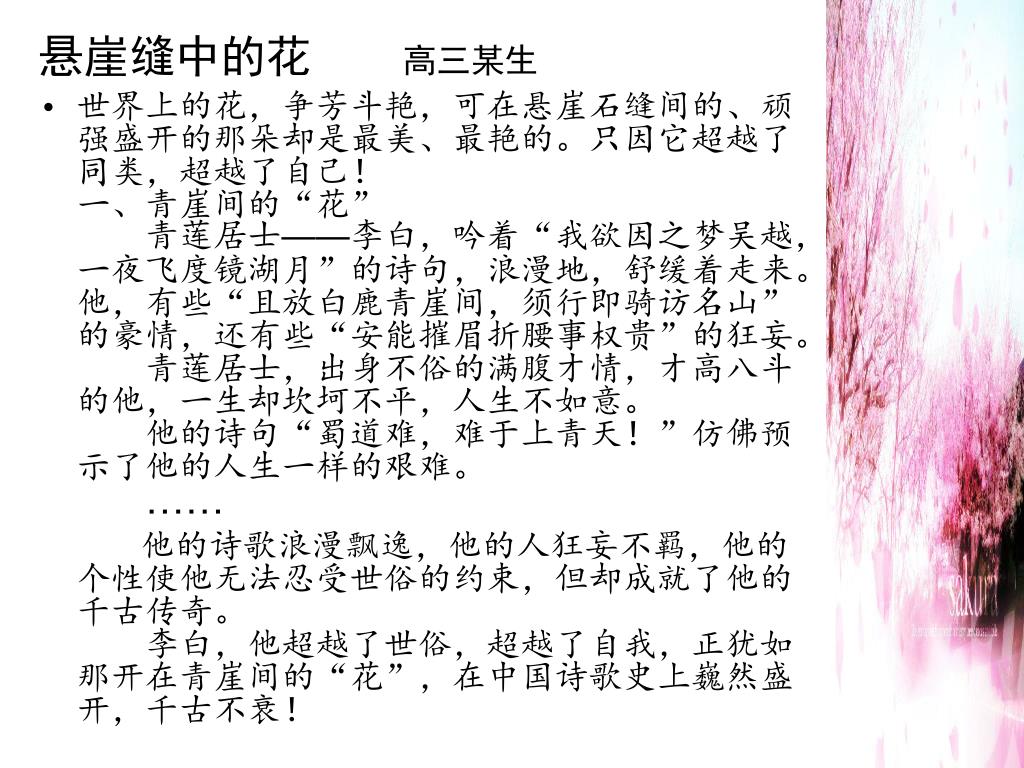 悬崖缝中的花 高三某生
• 世界上的花，争芳斗艳，可在悬崖石缝间的、顽
强盛开的那朵却是最美、最艳的。只因它超越了
同类，超越了自己！
一、青崖间的“花”
青莲居士——李白，吟着“我欲因之梦吴越，
一夜飞度镜湖月”的诗句，浪漫地，舒缓着走来。
他，有些“且放白鹿青崖间，须行即骑访名山”
的豪情，还有些“安能摧眉折腰事权贵”的狂妄。
青莲居士，出身不俗的满腹才情，才高八斗
的他，一生却坎坷不平，人生不如意。
他的诗句“蜀道难，难于上青天！”仿佛预
示了他的人生一样的艰难。
……
他的诗歌浪漫飘逸，他的人狂妄不羁，他的
个性使他无法忍受世俗的约束，但却成就了他的
千古传奇。
李白，他超越了世俗，超越了自我，正犹如
那开在青崖间的“花”，在中国诗歌史上巍然盛
开，千古不衰！
sakura